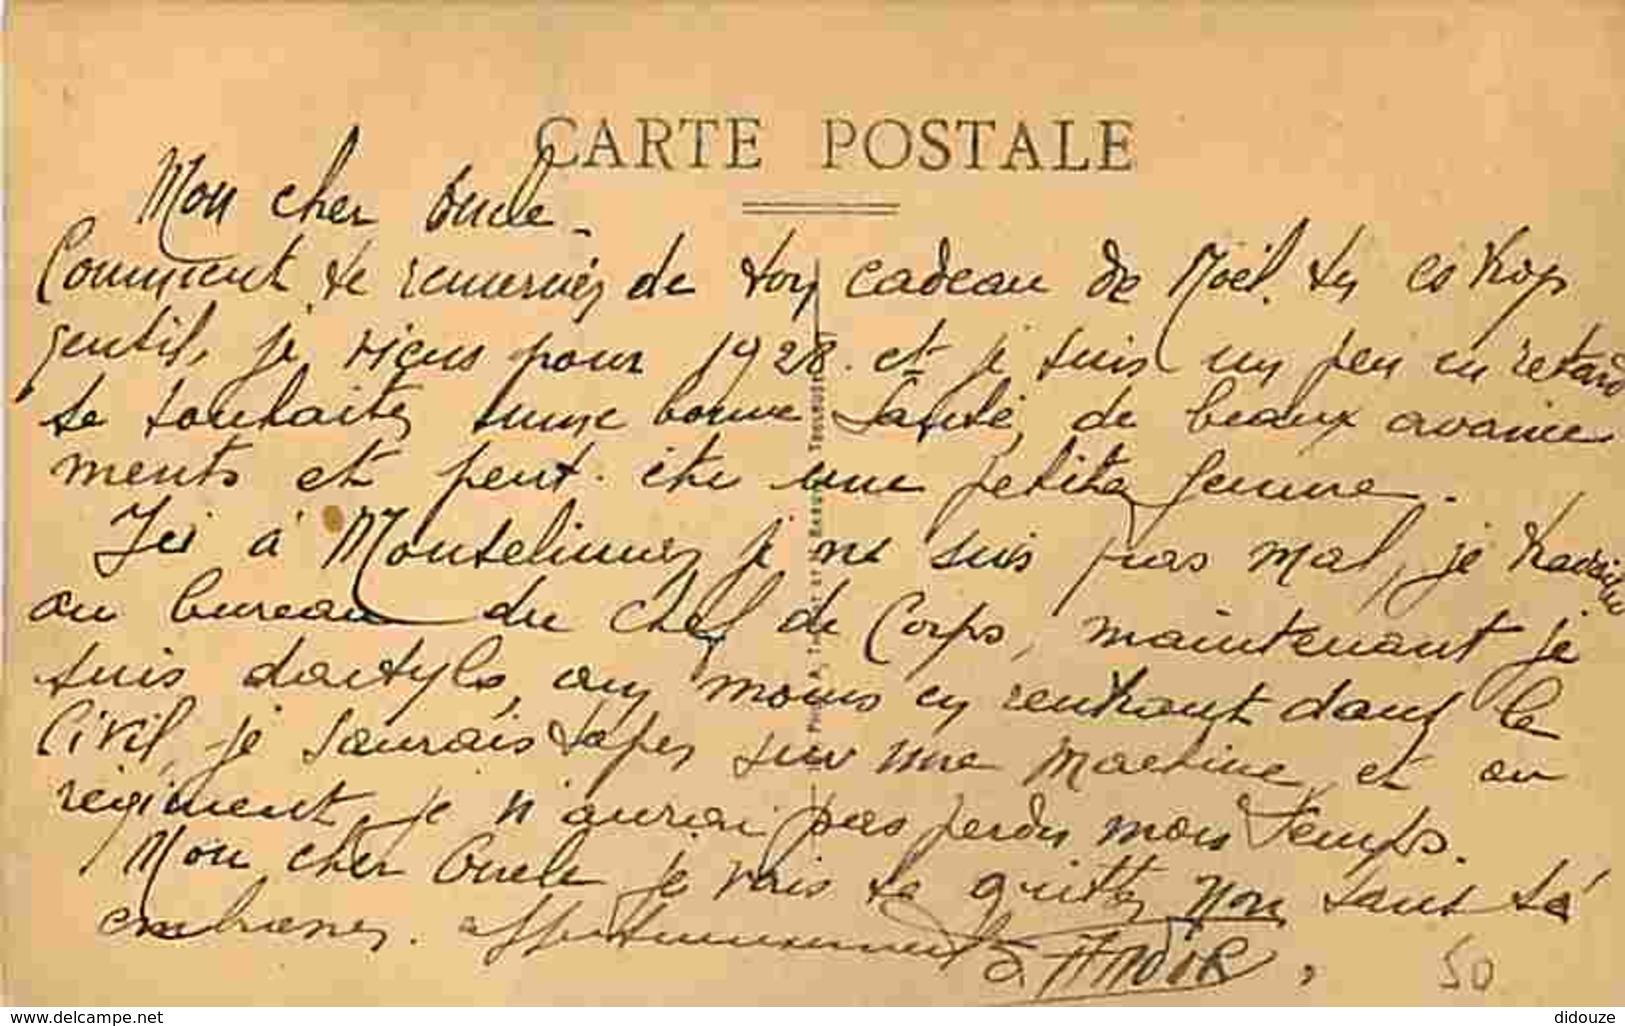 CARTE POSTALE
Mon cher Oncle.
Comment te remercier de ton cadeau de Noël. tu es trop
gentil, je viens pour 1928. et je suis un peu en retard
te souhaiter une bonne santé, de beaux avance
ments et peut-être une petite femme.
Ici à Montelimer je ne suis pas mal, je travaille
au bureau du Chef de Corps, maintenant je
suis dactylo, au moins en rentrant dans le
Civil, je saurais taper sur une machine et au
régiment je n'aurai pas perdu mon temps.
Mon cher Oncle je vais te quitter non sans t'
embrasser. affectueusement
50
www.delcampe.net
didouze